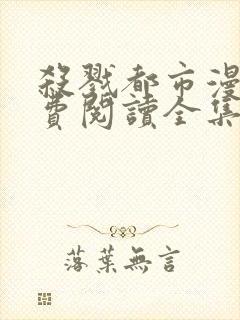 殺戮都市漫
費閱讀全集
落葉無言